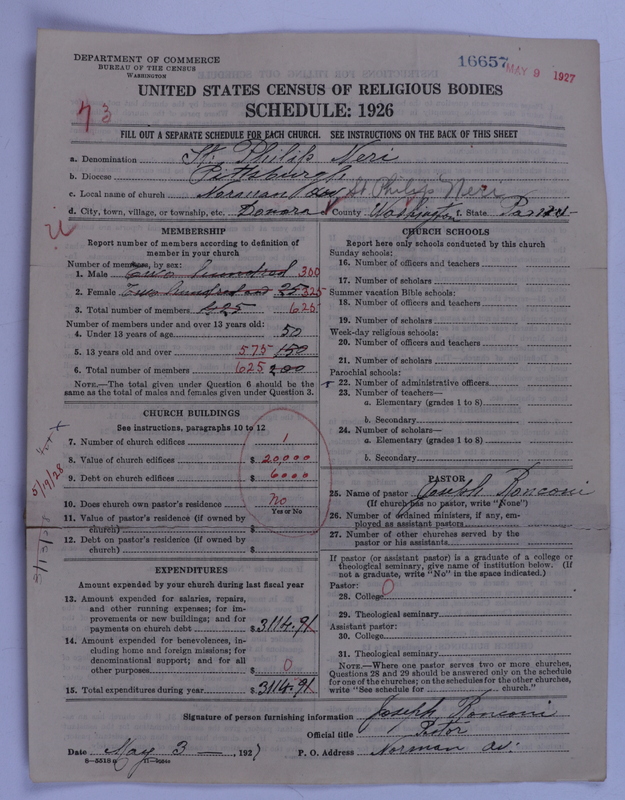 DEPARTMENT OF COMMERCE
BUREAU OF THE CENSUS
WASHINGTON
16657 MAY 9 1927
UNITED STATES CENSUS OF RELIGIOUS BODIES
SCHEDULE: 1926
73
FILL OUT A SEPARATE SCHEDULE FOR EACH CHURCH. SEE INSTRUCTIONS ON THE BACK OF THIS SHEET
a. Denomination St. Philip Neri
b. Diocese Pittsburgh
c. Local name of church Norman St Philip Neri
d. City, town, village, or township, etc. Donora County Washington f. State Penna
MEMBERSHIP
Report number of members according to definition of
member in your church
Number of members, by sex:
1. Male Two hundred 300
2. Female Two hundred and 25 325
3. Total number of members 625
Number of members under and over 13 years old:
4. Under 13 years of age 50
5. 13 years old and over 575 150
6. Total number of members 625 200
NOTE.—The total given under Question 6 should be the
same as the total of males and females given under Question 3.
CHURCH BUILDINGS
See instructions, paragraphs 10 to 12
7. Number of church edifices 1
8. Value of church edifices $ 20,000
9. Debt on church edifices $ 6000
10. Does church own pastor's residence? No
Yes or No
11. Value of pastor's residence (if owned by
church) $
12. Debt on pastor's residence (if owned by
church) $
5/19/28
EXPENDITURES
Amount expended by your church during last fiscal year
13. Amount expended for salaries, repairs,
and other running expenses; for im-
provements or new buildings; and for
payments on church debt $ 3114.91
14. Amount expended for benevolences, in-
cluding home and foreign missions; for
denominational support; and for all
other purposes $ 0
15. Total expenditures during year $ 3114.91
CHURCH SCHOOLS
Report here only schools conducted by this church
Sunday schools:
16. Number of officers and teachers
17. Number of scholars
Summer vacation Bible schools:
18. Number of officers and teachers
19. Number of scholars
Week-day religious schools:
20. Number of officers and teachers
21. Number of scholars
Parochial schools:
22. Number of administrative officers
23. Number of teachers—
a. Elementary (grades 1 to 8)
b. Secondary
24. Number of scholars—
a. Elementary (grades 1 to 8)
b. Secondary
PASTOR
25. Name of pastor Joseph Ronconi
(If church has no pastor, write "None")
26. Number of ordained ministers, if any, em-
ployed as assistant pastors
27. Number of other churches served by the
pastor or his assistants
If pastor (or assistant pastor) is a graduate of a college or
theological seminary, give name of institution below. (If
not a graduate, write "No" in the space indicated.)
Pastor:
28. College 0
29. Theological seminary
Assistant pastor:
30. College
31. Theological seminary
NOTE.—Where one pastor serves two or more churches,
Questions 28 and 29 should be answered only on the schedule
for one of the churches; on the schedules for the other churches,
write "See schedule for church."
Signature of person furnishing information Joseph Ronconi
Official title Pastor
Date May 3, 1927 P. O. Address Norman av.
8—5518a